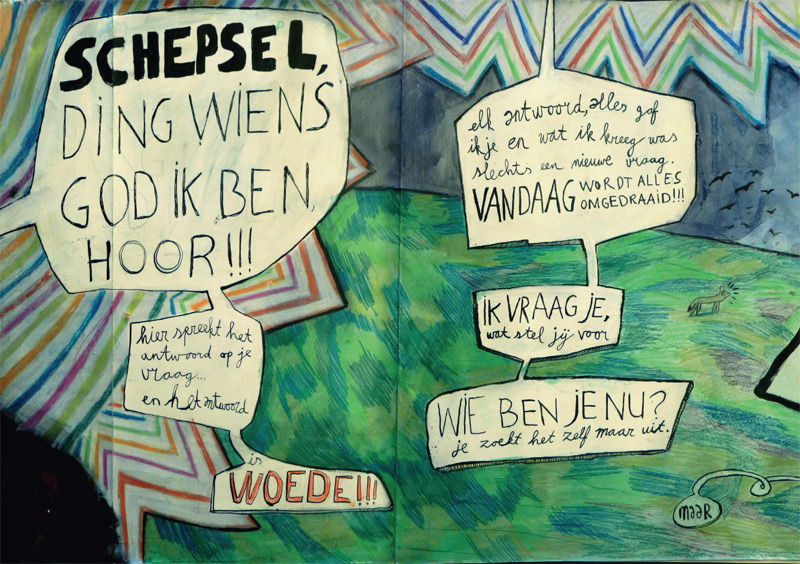 SCHEPSEL,
DING WIENS
GOD IK BEN,
HOOR!!!
hier spreekt het
antwoord op je
vraag...
en het antwoord
is
WOEDE!!!
elk antwoord, alles gaf
ik je en wat ik kreeg was
slechts een nieuwe vraag.
VANDAAG WORDT ALLES
OMGEDRAAID!!!
IK VRAAG JE,
wat stel jij voor
WIE BEN JE NU?
je zoekt het zelf maar uit.
maar